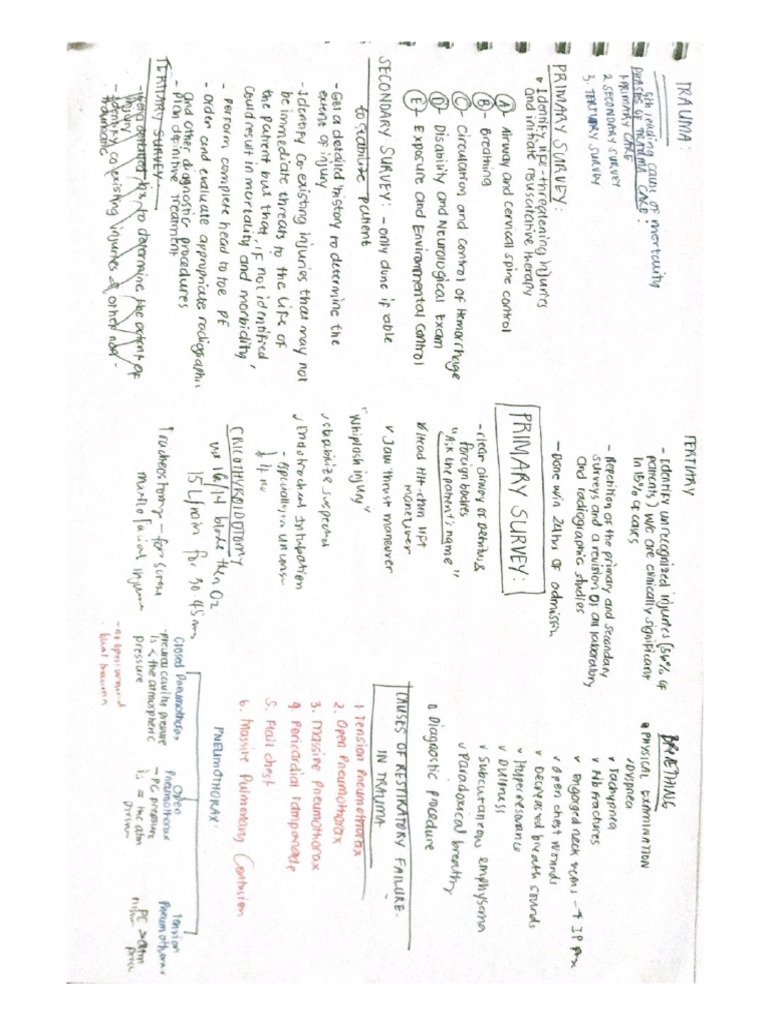 TRAUMA:
6th leading cause of mortality
PHASES OF TRAUMA CARE:
1. PRIMARY CARE
2. SECONDARY SURVEY
3. TERTIARY SURVEY
PRIMARY SURVEY:
Identify life-threatening injuries
and initiate resuscitative therapy
A - Airway and cervical spine control
B - Breathing
C - Circulation and control of Hemorrhage
D - Disability and Neurological Exam
E - Exposure and Environmental Control
SECONDARY SURVEY: - only done if able
to stabilize patient
- Get a detailed history to determine the
extent of injury
- Identify co-existing injuries that may not
be immediate threats to the life of
the patient but that, if not identified,
could result in mortality and morbidity
- Perform complete head to toe PE
- order and evaluate appropriate radiographic
and other diagnostic procedures
- plan definitive treatment
TERTIARY SURVEY
- Get a detailed hx to determine the extent of
injury
- Identify co existing injuries & other non-
traumatic
TERTIARY
- Identify unrecognized injuries (56% of
patients) w/c are clinically significant
in 15% of cases
- Repetition of the primary and secondary
surveys and a revision of all laboratory
and radiographic studies
- Done w/in 24hrs of admission
PRIMARY SURVEY:
- clear airway of debris &
foreign bodies
"Ask the patient's name"
Head tilt-chin lift
maneuver
✓ Jaw thrust maneuver
"Whiplash injury"
✓ stabilize suspected
✓ Endotracheal Intubation
- especially in uncons-
CRICOTHYROIDOTOMY
blade then O2
15 L/min for 30 45 min
Tracheostomy - for severe
maxillofacial injuries
BREATHING
PHYSICAL EXAMINATION
✓ Dyspnea
✓ Tachypnea
✓ Rib fractures
✓ engorged neck veins - ↑ IP
✓ open chest wounds
✓ Decreased breath sounds
✓ Hyperresonance
✓ Dullness
✓ Subcutaneous emphysema
✓ Paradoxical breathing
Diagnostic procedure
CAUSES OF RESPIRATORY FAILURE
IN TRAUMA
1. Tension Pneumothorax
2. Open Pneumothorax
3. Massive Pneumothorax
4. Pericardial Tamponade
5. Flail chest
6. Massive Pulmonary Contusion
PNEUMOTHORAX:
Closed Pneumothorax
- pleural cavity pressure
is < the atmospheric
pressure
- no open wound
Open
Pneumothorax
- PC pressure
is = the atm
pressure
Tension
Pneumothorax
PC > atm